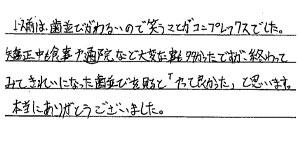 以前は歯並びがわるいので笑うことがコンプレックスでした。
矯正中も食事や通院など大変な事も多かったですが、終わって
みてきれいになった歯並びを見ると「やって良かった」と思います。
本当にありがとうございました。